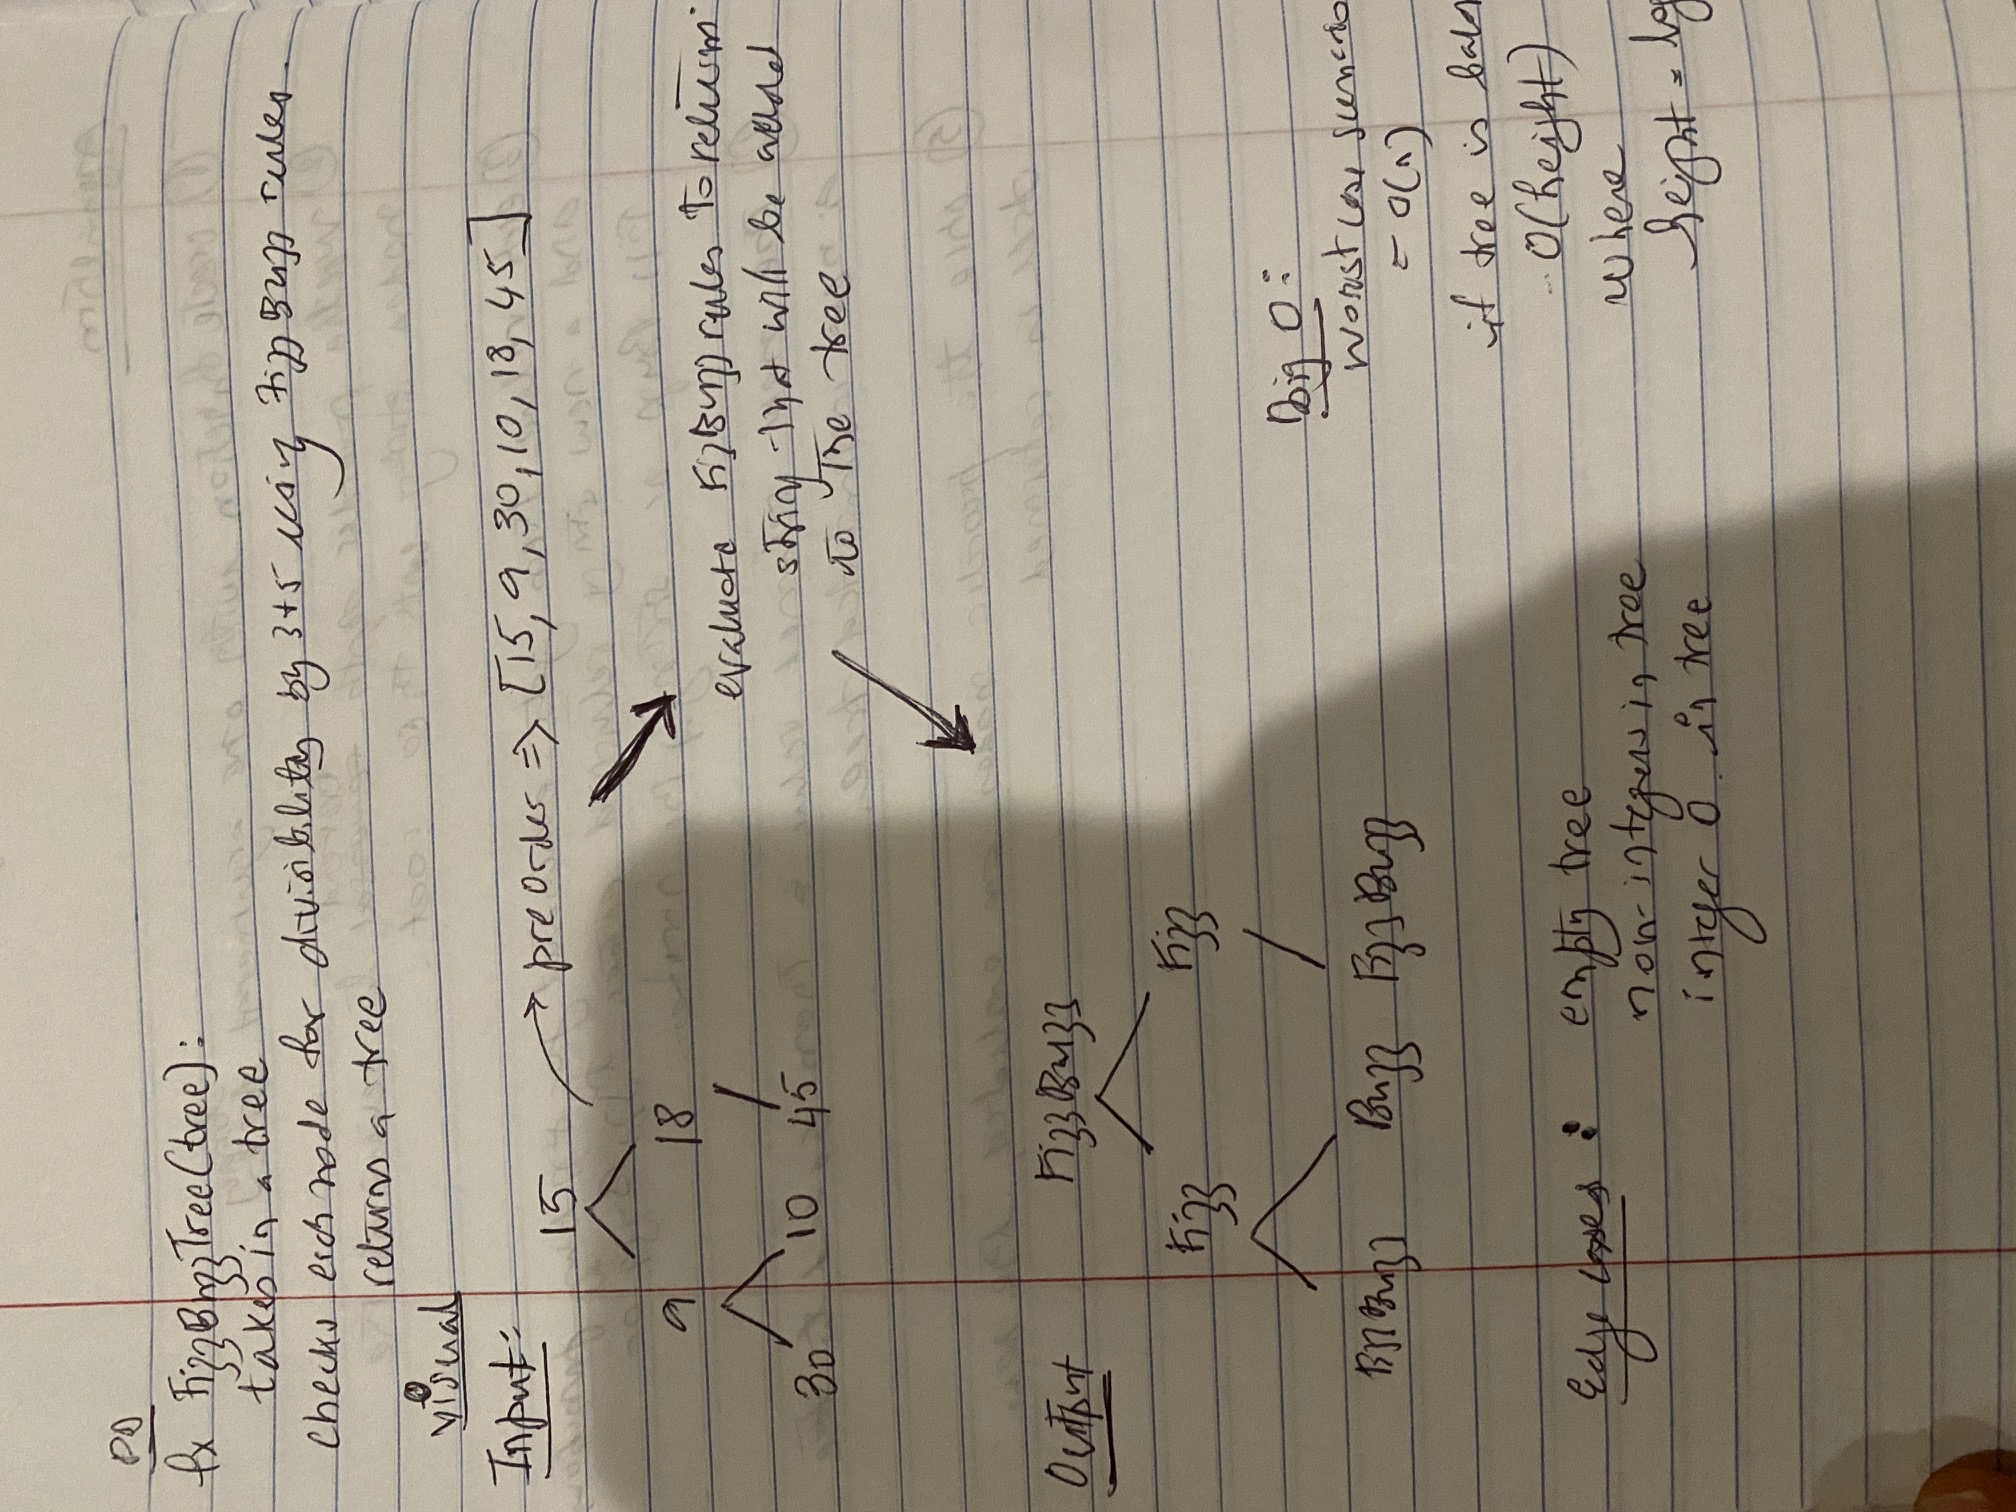 PD
fx FizzBuzzTree(tree):
takes in a tree
checks each node for divisibility by 3+5 using FizzBuzz rules.
returns a tree
Visual
Input:
preorder => [15, 9, 30, 10, 18, 45]
15
9 18
30 10 45
evaluate FizzBuzz rules to return
string that will be added
to the tree
Output
FizzBuzz
Fizz Fizz
FizzBuzz Buzz FizzBuzz
Big O:
worst case scenario
= O(n)
if tree is bala
O(height)
where
height = log
Edge cases: empty tree
non-integers in tree
integer 0 in tree